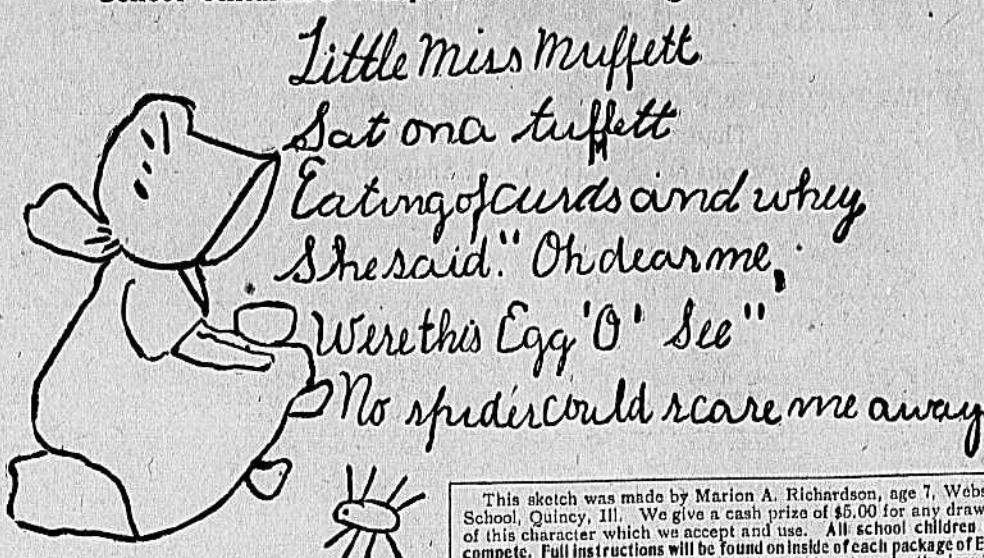 Little Miss Muffett
Sat on a tuffett
Eating of curds and whey,
She said." Oh dear me,
Were this Egg 'O' See"
No spider could scare me away
This sketch was made by Marion A. Richardson, age 7, Webs
School, Quincy, Ill. We give a cash prize of $5.00 for any draw
of this character which we accept and use. All school children
compete. Full instructions will be found on inside of each package of E